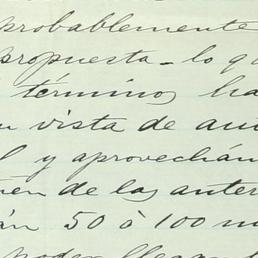 probablemente
propuesta - lo q
términos ha
n vista de au
l y aprovechán
en de las anter
án 50 á 100 m
poder llegar